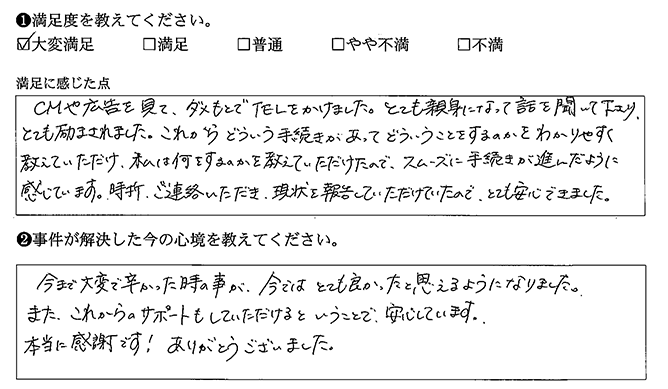 ❶満足度を教えてください。
☑大変満足 □満足 □普通 □やや不満 □不満
満足に感じた点
CMや広告を見て、ダメもとでTELをかけました。とても親身になって話を聞いて下さり、
とても励まされました。これからどういう手続きがあってどういうことをするのかをわかりやすく
教えていただけ、私は何をするのかを教えていただけたので、スムーズに手続きが進んだように
感じています。時折、ご連絡いただき、現状を報告していただけていたので、とても安心できました。
❷事件が解決した今の心境を教えてください。
今まで大変で辛かった時の事が、今ではとても良かったと思えるようになりました。
また、これからのサポートもしていただけるということで、安心しています。
本当に感謝です！ありがとうございました。